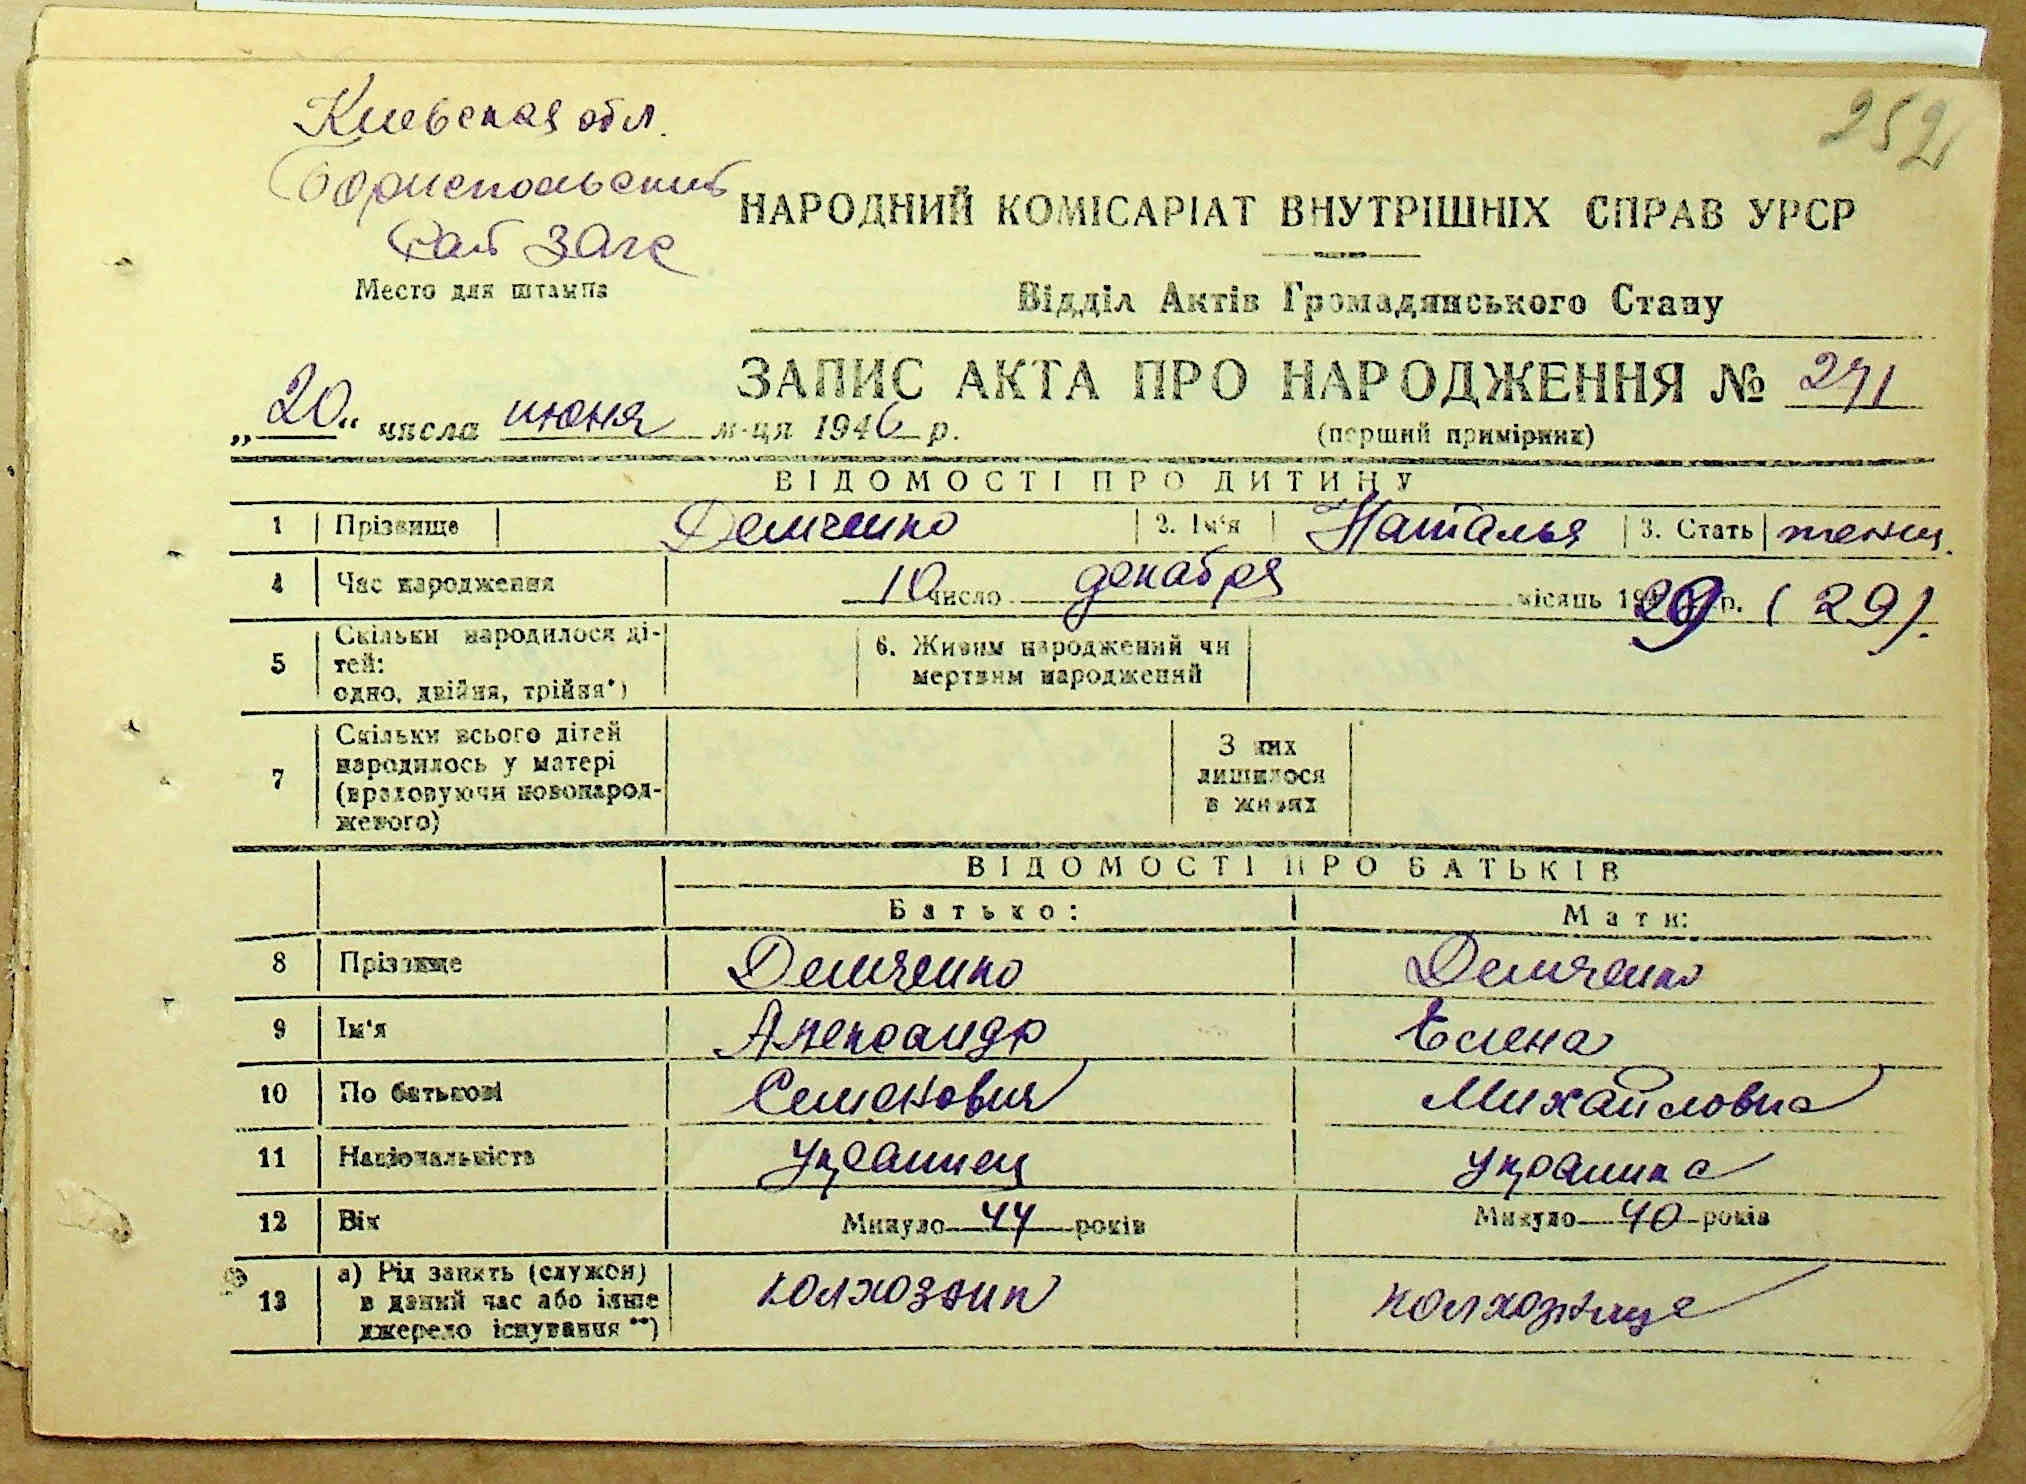 252
Киевская обл.
Бориспольский
Рай ЗАГС
Место для штампа
НАРОДНИЙ КОМІСАРІАТ ВНУТРІШНІХ СПРАВ УРСР
Відділ Актів Громадянського Стану
ЗАПИС АКТА ПРО НАРОДЖЕННЯ № 271
„20“ числа июня м-ця 1946 р.
(перший примірник)
ВІДОМОСТІ ПРО ДИТИНУ
1 Прізвище Демченко 2. Ім'я Наталья 3. Стать женщ.
4 Час народження 10 число декабря місяць 1929 р. (29).
5 Скільки народилося ді-
тей:
одно, двійня, трійня*)
6. Живим народжений чи
мертвим народжений
7 Скільки всього дітей
народилось у матері
(враховуючи новонарод-
женого)
З них
лишилося
в живих
ВІДОМОСТІ ПРО БАТЬКІВ
Батько: Мати:
8 Прізвище Демченко Демченко
9 Ім'я Александр Елена
10 По батькові Семенович Михайловна
11 Національність Украинец Украинка
12 Вік Минуло 44 років Минуло 40 років
13 а) Рід занять (служби)
в даний час або інше
джерело існування **)
колхозник колхозница